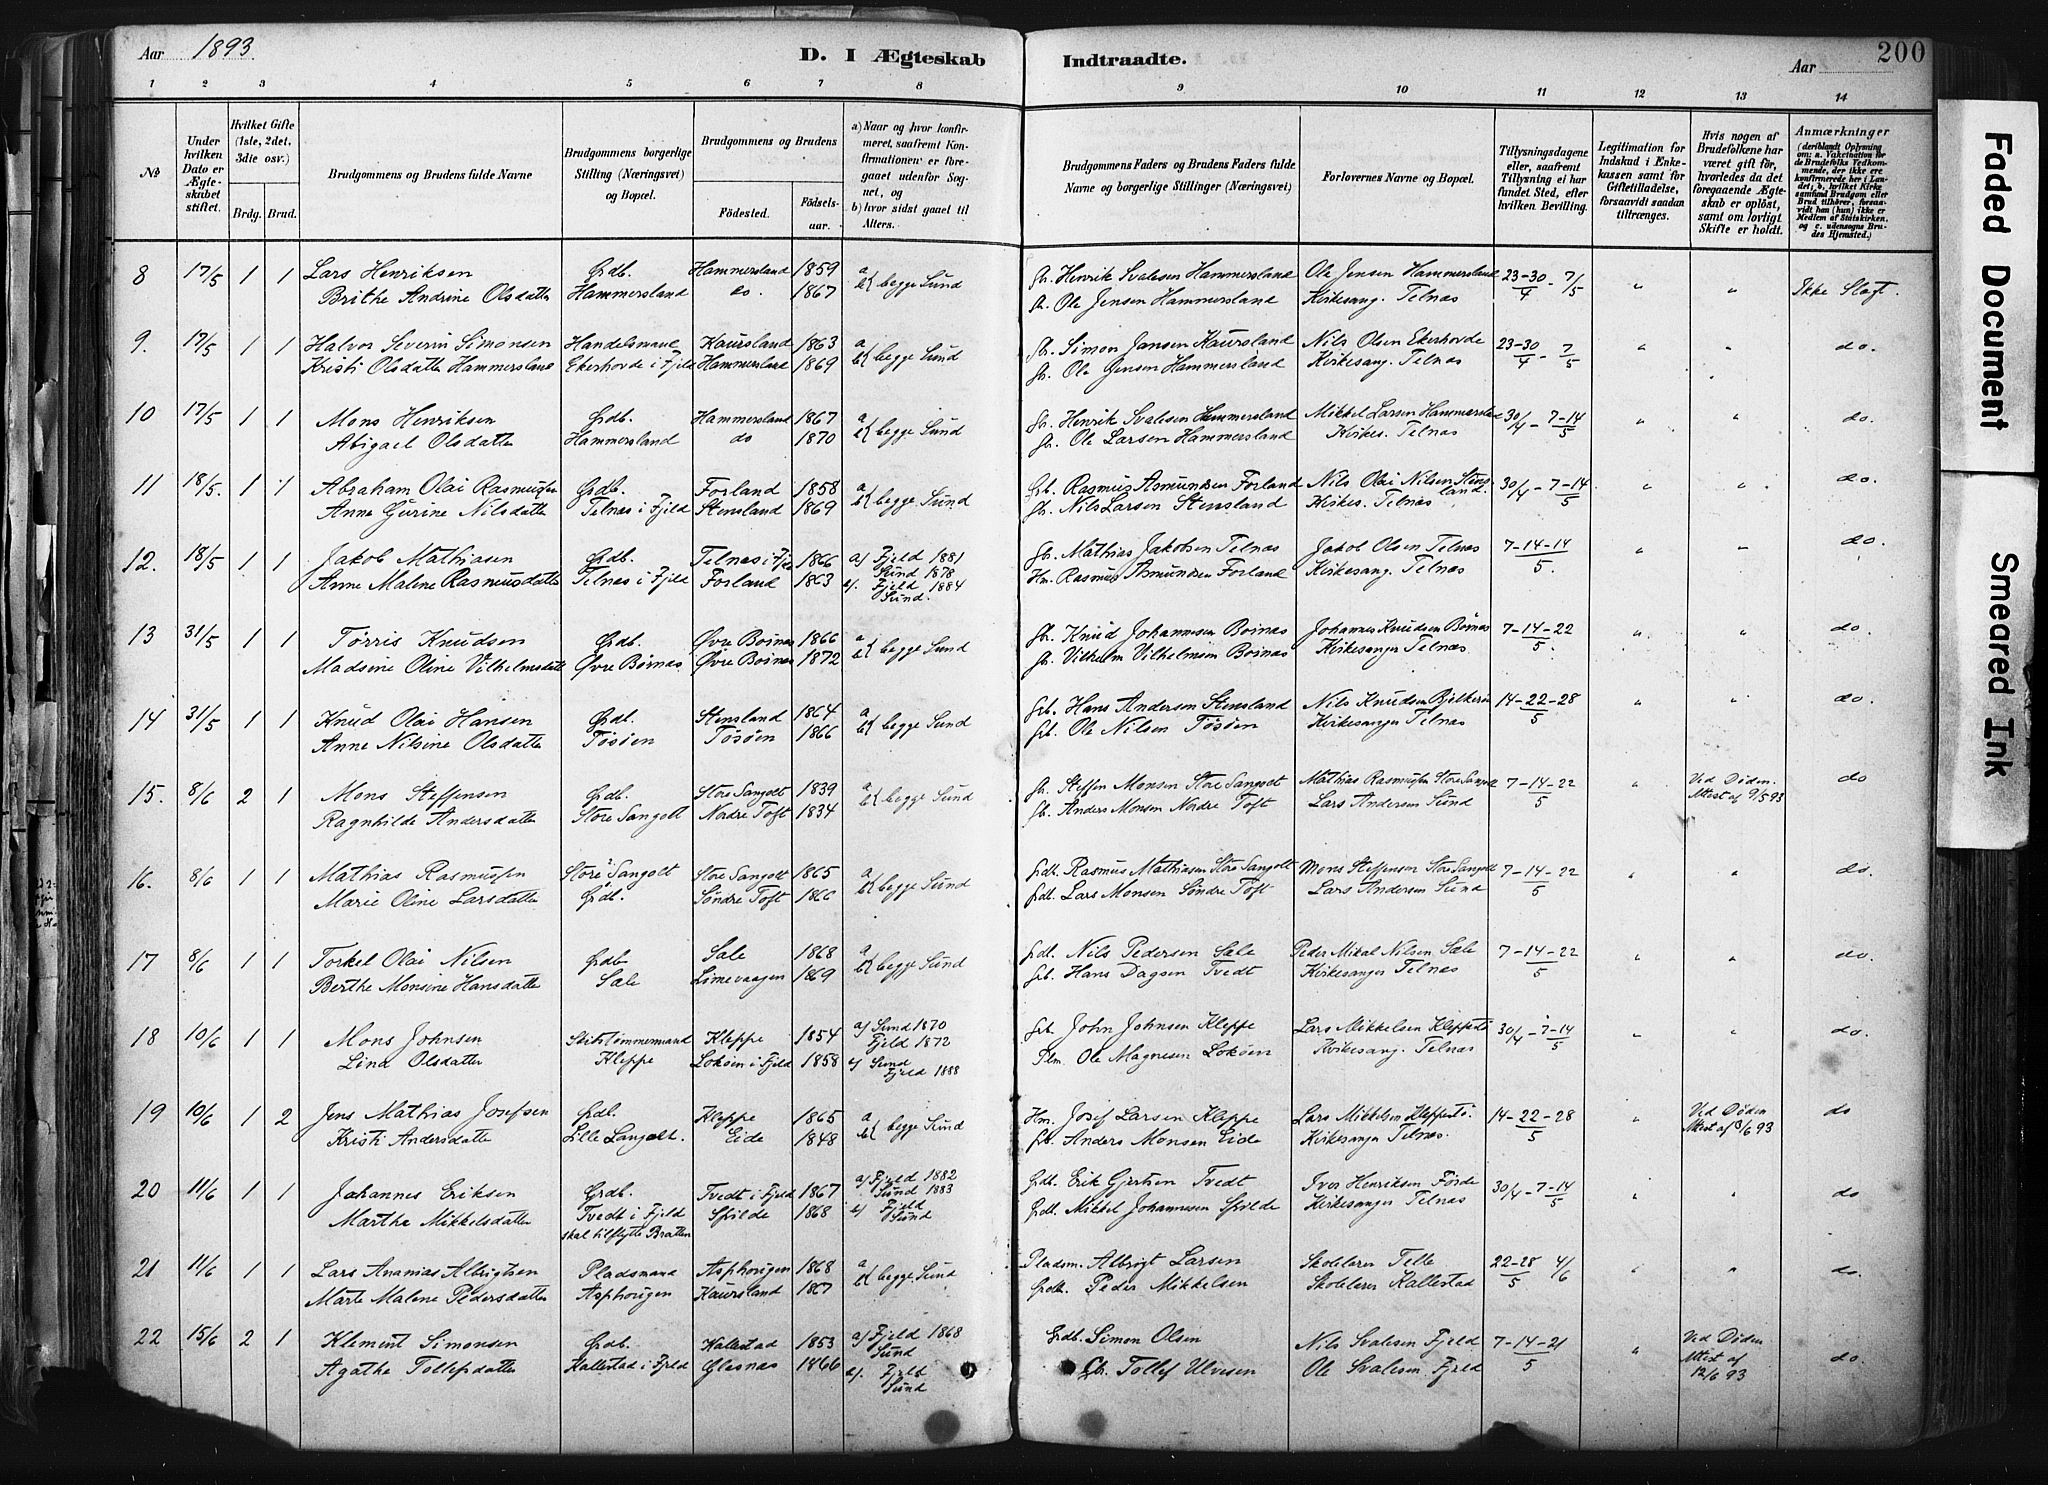 Aar 1893.
D. I Ægteskab Indtraadte.
Aar
200
1 2 3 4 5 6 7 8 9 10 11 12 13 14
No
Under hvilken Dato er Ægteskabet stiftet.
Hvilket Gifte (1ste, 2det, 3die osv.)
Brdg. Brud.
Brudgommens og Brudens fulde Navne
Brudgommens borgerlige Stilling (Næringsvei) og Bopæl.
Brudgommens og Brudens
Fødested. Fødselsaar.
a) Naar og hvor konfirmeret, saafremt Konfirmationen er foregaaet udenfor Sognet, og
b) hvor sidst gaaet til Alters.
Brudgommens Faders og Brudens Faders fulde Navne og borgerlige Stillinger (Næringsvei)
Forlovernes Navne og Bopæl.
Tillysningsdagene eller, saafremt Tillysning ei har fundet Sted, efter hvilken Bevilling.
Legitimation for Indskud i Ænkekassen samt for Giftetilladelse, forsaavidt saadan tiltrænges.
Hvis nogen af Brudefolkene har været gift før, hvorledes da det foregaaende Ægteskab er opløst, samt om lovligt Skifte er holdt.
Anmærkninger (deriblandt Oplysning om: a. Vakcination for de Brudefolks Vedkommende, der ikke ere konfirmerede her i Landet; b. hvilket Kirkesamfund Brudgom eller Brud tilhører, forsaavidt han (hun) ikke er Medlem af Statskirken, og c. udensogns Brudes Hjemsted.)
8 17/5 1 1 Lars Henriksen Grdb. Hammersland 1859 a b} begge Sund Gb. Henrik Svalesen Hammersland Ole Jensen Hammersland 23-30/4 - 7/5 " " Ikke Slægt.
Brithe Andrine Olsdatter Hammersland do. 1867 Gb. Ole Jensen Hammersland Kirkesang. Telnæs
9. 17/5 1 1 Halvor Severin Simonsen Handelsmand Kaursland 1863 a b} begge Sund Gb. Simon Jansen Kaursland Nils Olsen Ekerhovde 23-30/4 - 7/5 " " do.
Kristi Olsdatter Hammersland Ekerhovde i Fjeld Hammersland 1869 Gb. Ole Jensen Hammersland Kirkesang. Telnæs
10 17/5 1 1 Mons Henriksen Grdb. Hammersland 1867 a b} begge Sund Gb. Henrik Svalesen Hammersland Mikkel Larsen Hammersland 30/4 - 7-14/5 " " do.
Abigael Olsdatter Hammersland do 1870 Gb. Ole Larsen Hammersland Kirkes. Telnæs
11 18/5. 1 1 Abraham Olai Rasmussen Grdb. Forland 1858 a b} begge Sund Grb. Rasmus Asmundsen Forland Nils Olai Nilsen Stensland. 30/4 - 7-14/5 " " do.
Anne Gurine Nilsdatter Telnæs i Fjeld Stensland 1869 Gb. Nils Larsen Stensland Kirkes. Telnæs
12. 18/5 1 1 Jakob Mathiasen Grdb. Telnæs i Fjeld 1866 a) Fjeld 1881 Sund 1878 Gb. Mathias Jakobsen Telnæs Jakob Olsen Telnæs 7-14-14/5. " " do.
Anne Malene Rasmusdatter Telnæs i Fjeld Forland 1863 Fjeld 1884 Sund. Hm. Rasmus Asmundsen Forland Kirkesang. Telnæs
13 31/5 1 1 Torris Knudsen Grdb. Øvre Børnæs 1866 a b} begge Sund Gb. Knud Johannesen Børnæs Johannes Knudsen Børnæs 7-14-22/5. " " do.
Madsine Oline Vilhelmsdatter Øvre Børnæs Øvre Børnæs 1872 Gb. Vilhelm Vilhelmsen Børnæs Kirkesanger Telnæs
14 31/5 1 1 Knud Olai Hansen Grdb. Stensland 1864 a b} begge Sund Grb. Hans Andersen Stensland Nils Knudsen 14-22-28/5 " " do.
Anne Nilsine Olsdatter Tøsøen Tøsøen 1866 Grb. Ole Nilsen Tøsøen Kirkesanger Telnæs
15. 8/6 2 1 Mons Steffensen Grdb. Store Sangolt 1839 a b} begge Sund Gb. Steffen Monsen Store Sangolt Mathias Rasmussen Store Sangolt 7-14-22/5 " Ved Døden. Attest af 9/5 93 do
Ragnhilde Andersdatter Store Sangolt Nordre Toft 1834 Gb. Anders Monsen Nordre Toft Lars Andersen Sund
16. 8/6 1 1 Mathias Rasmussen Store Sangolt Store Sangolt 1865 a b} begge Sund Grdb. Rasmus Mathiasen Store Sangolt Mons Steffensen Store Sangolt 7-14-22/5 " " do.
Marie Oline Larsdatter Grdb. Søndre Toft 1866 Grdb. Lars Monsen Søndre Toft Lars Andersen Sund
17 8/6 1 1 Torkel Olai Nilsen Grdb Sæle 1868 a b} begge Sund Grdb. Nils Pedersen Sæle Peder Mikal Nilsen Sæle 7-14-22/5 " " do.
Berthe Monsine Hansdatter Sæle Limevaagen 1869 Grb. Hans Dagsen Tvedt Kirkesanger Telnæs
18 10/6 1 1 Mons Johnsen Skibstømmermand Kleppe 1854 a) Sund 1870 Fjeld 1872 Grb John Johnsen Kleppe Lars Mikkelsen Kleppestø 30/4 - 7-14/5 " " do.
Lina Olsdatter Kleppe Loksøen i Fjeld 1858 Sund Fjeld 1888 Plm. Ole Magnesen Loksøen Kirkesang. Telnæs
19 10/6 1 2 Jens Mathias Josefsen Grdb. Kleppe 1865 a b} begge Sund Hm. Josef Larsen Kleppe Lars Mikkelsen Kleppestø. 14-22-28/5 " Ved Døden Attest af 3/6 93 do
Kristi Andersdatter Lille Sangolt. Eide 1848 Grb. Anders Monsen Eide Kirkesanger Telnæs.
20 11/6 1 1 Johannes Eriksen Grdb. Tvedt i Fjeld 1867 a) Fjeld 1882 Sund 1883 Grdb. Erik Gjertsen Tvedt Iver Henriksen Førde 30/4 - 7-14/5 " " do
Marthe Mikkelsdatter Tvedt i Fjeld Spilde 1868 Fjeld Sund Grdb. Mikkel Johannesen Spilde Kirkesanger Telnæs
skal tilflytte Bratten
21 11/6 1 1 Lars Ananias Albrigtsen Pladsmand Asphovigen 1868 a b} begge Sund Pladsm. Albrigt Larsen Skolelærer Telle 22-28/5 4/6 " " do.
Marte Malene Pedersdatter Asphovigen Kaursland 1867 Grdb. Peder Mikkelsen Skolelærer Kallestad
22 15/6 2 1 Klement Simonsen Grdb. Kallestad 1853 a) Fjeld 1868 Sund Grdb. Simon Olsen Nils Svalesen Fjeld 7-14-21/5 " Ved Døden Attest af 12/6 93 do.
Agathe Tollefsdatter Kallestad i Fjeld Glesnæs 1866 Fjeld Sund Gb. Tollef Ulvesen Ole Svalesen Fjeld
Faded Document
Smeared Ink